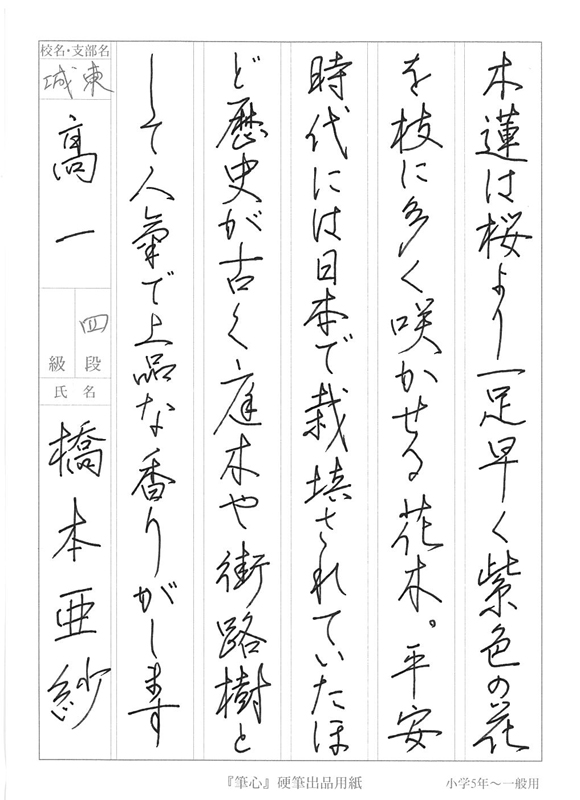 木蓮は桜より一足早く紫色の花
を枝に多く咲かせる花木。平安
時代には日本で栽培されていたほ
ど歴史が古く、庭木や街路樹と
して人氣で上品な香りがします
校名・支部名
城東
高一
四段
級
氏名
橋本亜紗
『筆心』硬筆出品用紙
小学5年〜一般用